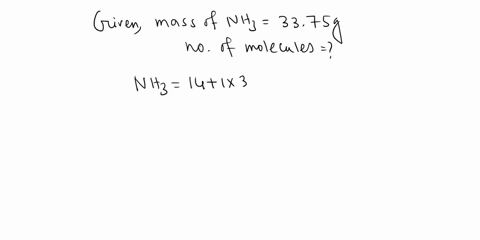 Given, mass of NH3 = 33.75g
no. of molecules = ?
NH3 = 14+1×3